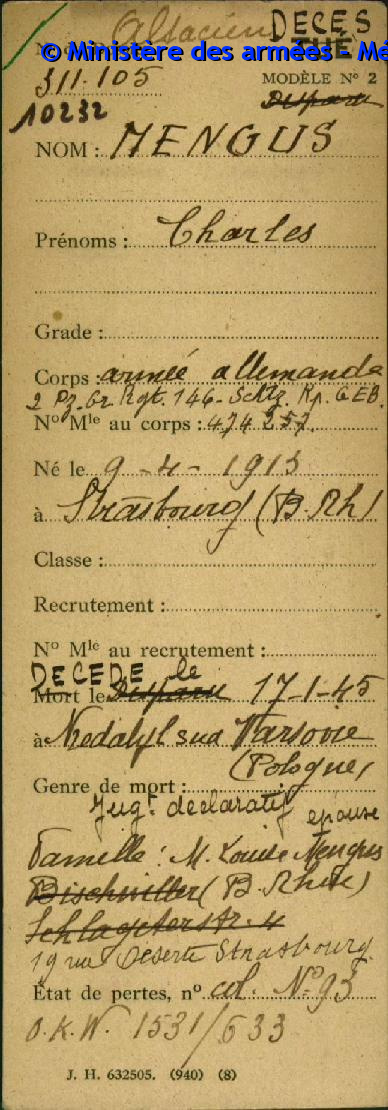 Alsacien DECES
© Ministère des armées - Mé
311.105
MODÈLE N° 2
10232
Disparu
NOM : MENGUS
Prénoms : Charles
Grade :
Corps : armée allemande
2 Pz. Gr. Rgt. 146 - Schtz. Kp. G EB.
N° Mle au corps : 474 257.
Né le 9 - 4 - 1913
à Strasbourg (B. Rh)
Classe :
Recrutement :
N° Mle au recrutement :
DECEDE le
Mort le Disparu 17-1-45
à Nedabyl sud Varsovie
(Pologne)
Genre de mort :
Jugt. declaratif
epouse
Famille : M. Louise Mengus
Bischwiller (B. Rhin)
Schlageterstr. 4
19 rue Deserte Strasbourg
État de pertes, n° col. N° 93
O.K.W. 1531/633
J. H. 632505. (940) (8)